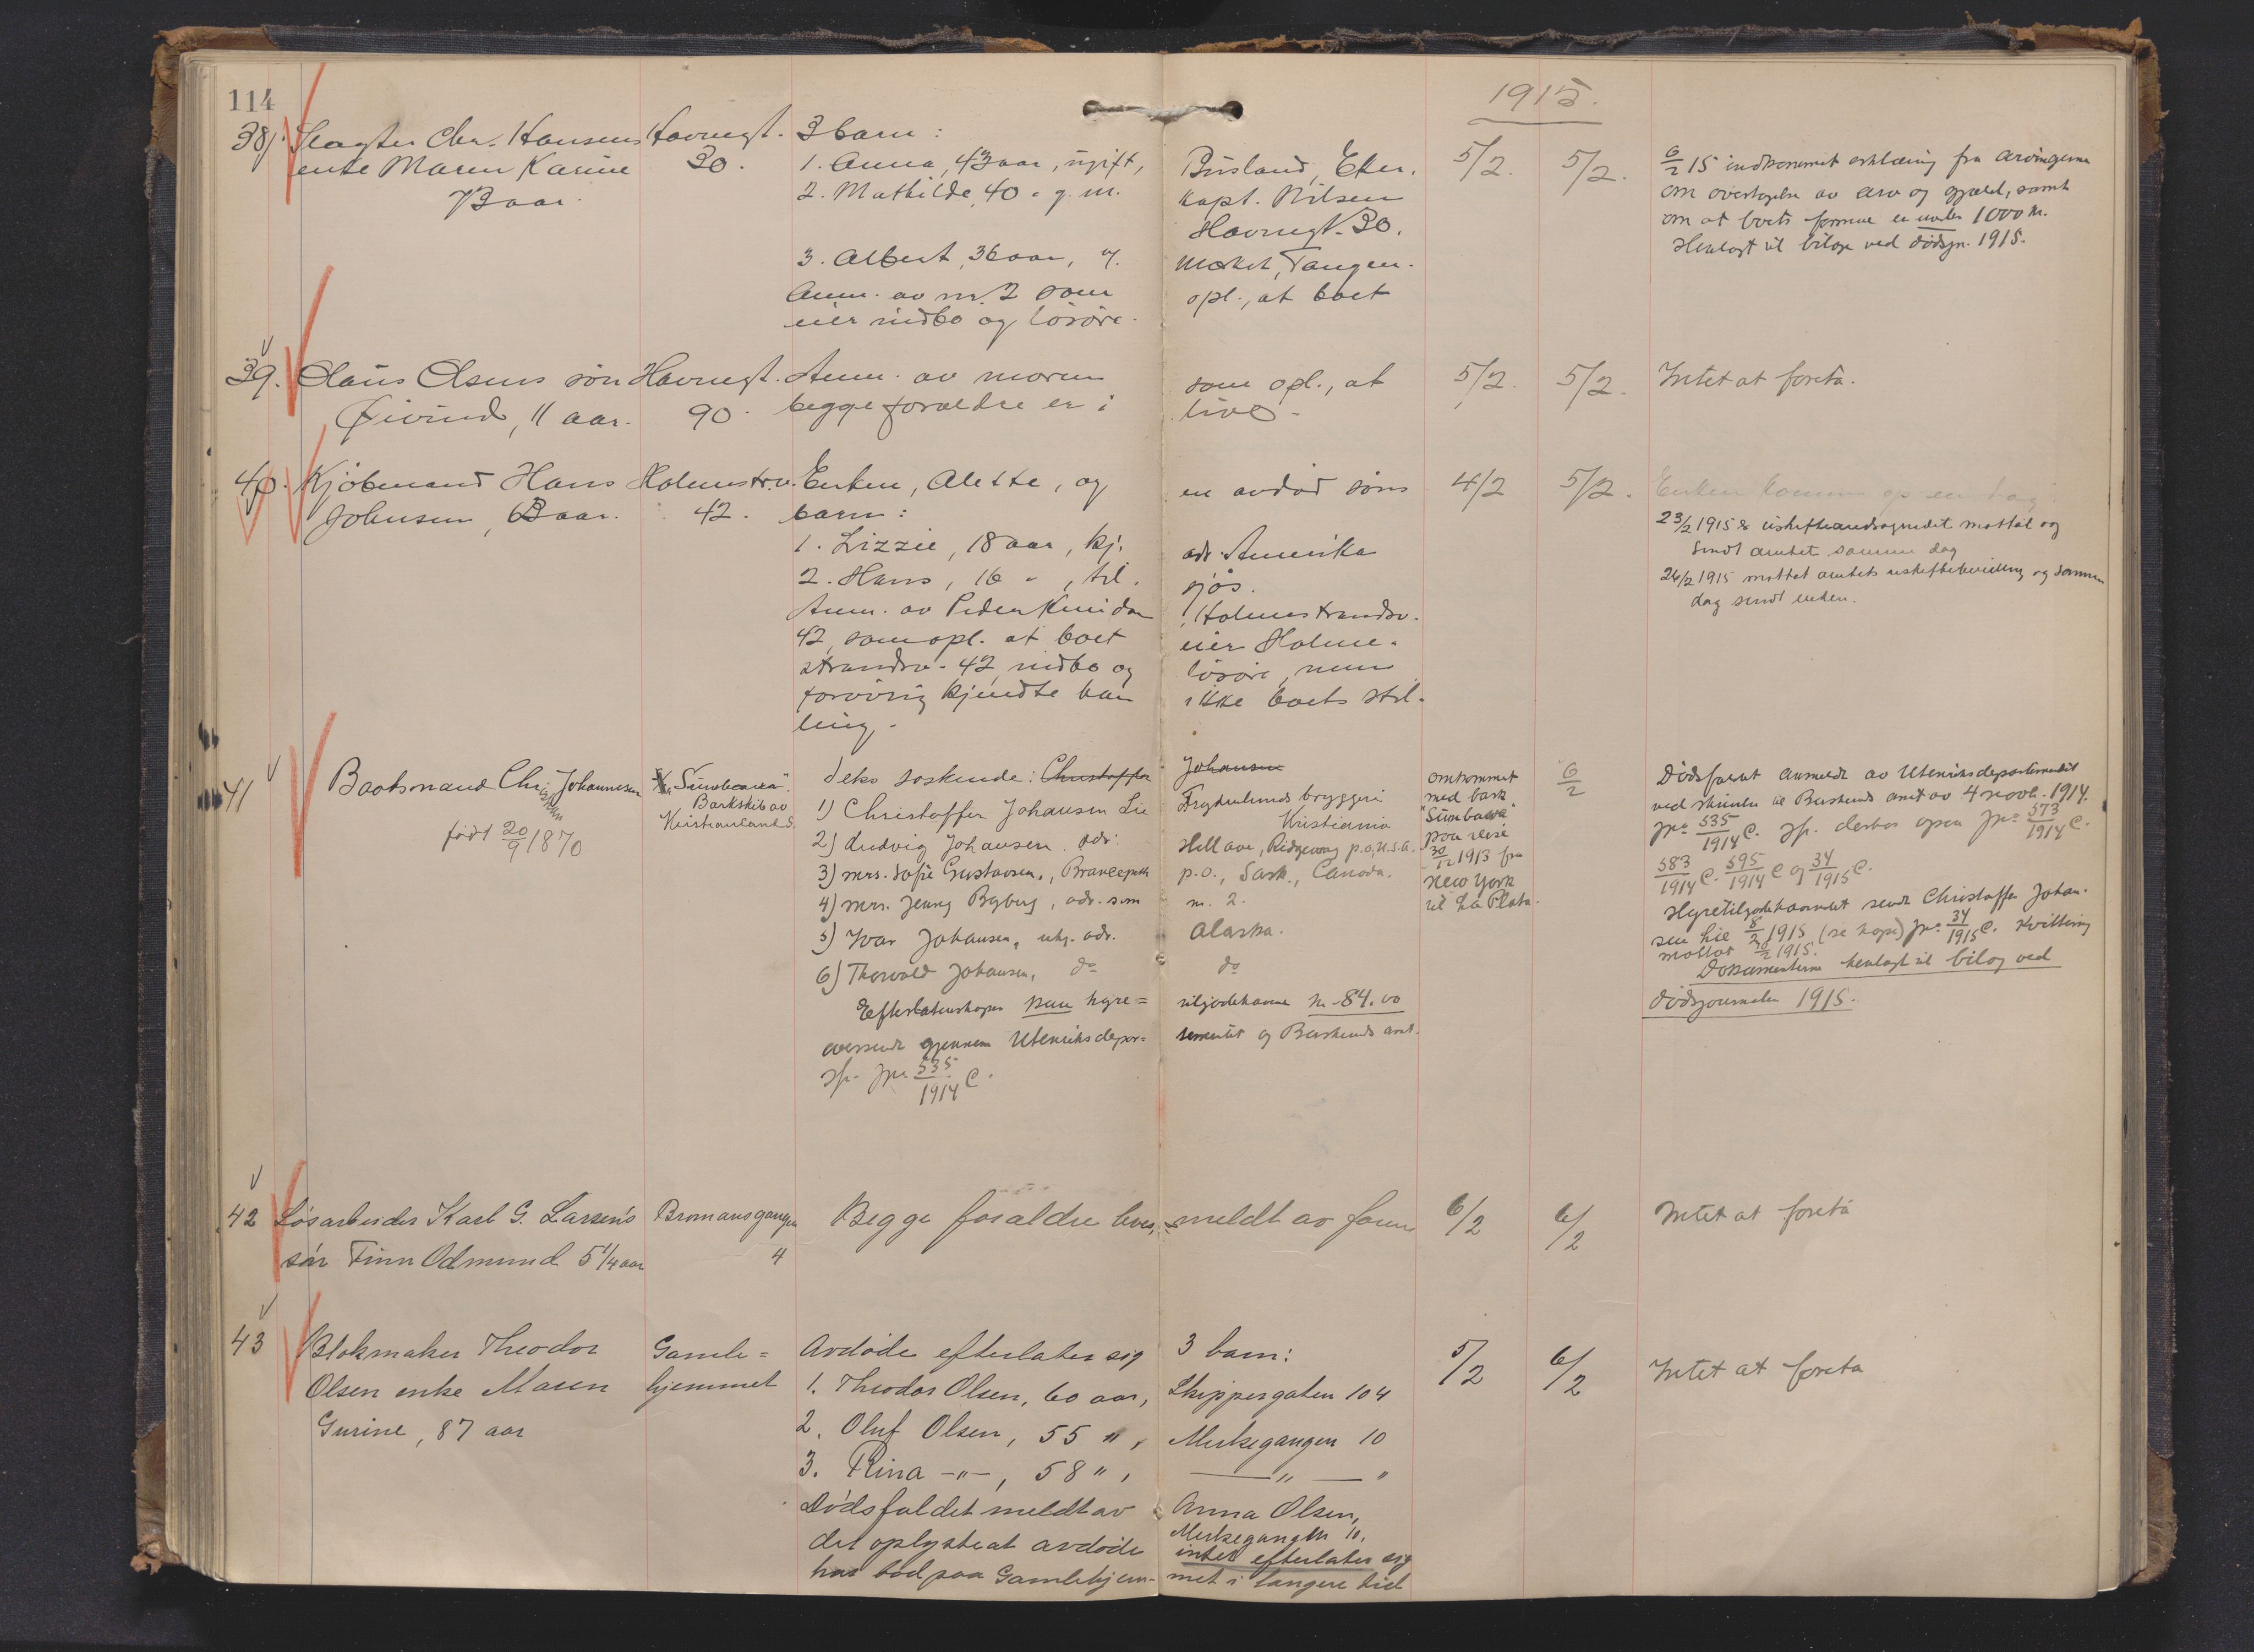 114
1915.
38. Slagter Chr. Hansens Havnegt. 3 barn:
enke Maren Karine 30. 1. Anna, 43 aar, ugift, Busland, Eker. 5/2. 5/2. 6/2 15 indkommet erklæring fra arvingerne
73 aar. 2. Mathilde, 40 " g. m. kapt. Nilsen om overtagelse av arv og gjæld, samt
Havnegt. 30. om at boets formue er under 1000 kr.
3. Albert, 36 aar, g. Mørket, Tangen. Henlagt til bilage ved dødsjn. 1915.
Anm. av nr. 2 som opl., at boet
eier indbo og løsøre.
39. Olaus Olsens søn Havnegt. Anm. av moren som opl., at 5/2. 5/2. Intet at foreta.
Øivind, 11 aar. 90. begge forældre er i live.
40. Kjøbmand Hans Holmstr.v. Enken, Alette, og en avdød søns 4/2 5/2. Enken kommer op en dag
Johnsen, 63 aar. 42. barn:
23/2 1915 uskifteandragendet mottat og
sendt amtet samme dag
1. Lizzie, 18 aar, kj. adr. Amerika
24/2 1915 mottat amtets uskiftebevilling og samme
dag sendt enken.
2. Hans, 16 " , til sjøs.
Anm. av Peder Knudsen, Holmestrandsv.
42, som opl. at boet eier Holme-
strandsv. 42, indbo og løsøre, men
forøvrig kjendte han ikke boets stil-
ling.
41 Baatsmand Christian Johannesen "Sumbawa". deks søskende: Christoffer Johansen omkommet 6/2 Dødsfaldet anmeldt av Utenriksdepartementet
født 20/9 1870 Barkskib av
Kristiansand S.
1) Christoffer Johansen Lie Frydenlunds bryggeri med bark ved skrivelse til Buskeruds amt av 4 novb. 1914.
Kristiania "Sumbawa" jnr 535/1914 C. jfr. desuten jnr 573/1914 C.
2) Ludvig Johansen adr: Hill ave, Ridgeway p.o, U.S.A. paa reise 583/1914 C. 595/1914 C og 34/1915 C.
3) mrs. Sofie Gustavsen, Brancepeth p.o., Sask., Canada. 30/12 1913 fra
4) mrs. Jenny Byberg, adr. som nr. 2. New York Hyretilgodehavendet sendt Christoffer Johan-
5) Ivar Johansen, ukj. adr. Alaska. til La Plata. sen Lie 8/2 1915 (se kopi) jnr 34/1915 C. Kvittering
6) Thorvald Johansen, do do mottat 1915.
Efterlatenskaper kun hyre= tilgodehavende kr. 84.00 Dokumenterne henlagt til bilag ved
oversendt gjennem Utenriksdepar= tementet og Buskeruds amt. dødsjournalen 1915.
jfr. jnr 535/1914 C.
42 Løsarbeider Karl G. Larsen's Bromansgangen Begge forældre lever, meldt av faren 6/2 6/2 Intet at foreta
søn Finn Odmund 5 1/4 aar 4
43 Blokmaker Theodor Gamle= Avdøde efterlater sig 3 barn: 5/2 6/2 Intet at foreta
Olsen enke Maren hjemmet 1. Theodor Olsen, 60 aar, Skippergaten 104
Gurine, 87 aar 2. Oluf Olsen, 55 ", Meksegangen 10
3. Rina -"-, 58 ", — " — "
Dødsfaldet meldt av Anna Olsen,
Meksegangen 10,
det oplyste at avdøde intet efterlater sig
har bod paa Gamlehjem- met i længere tid